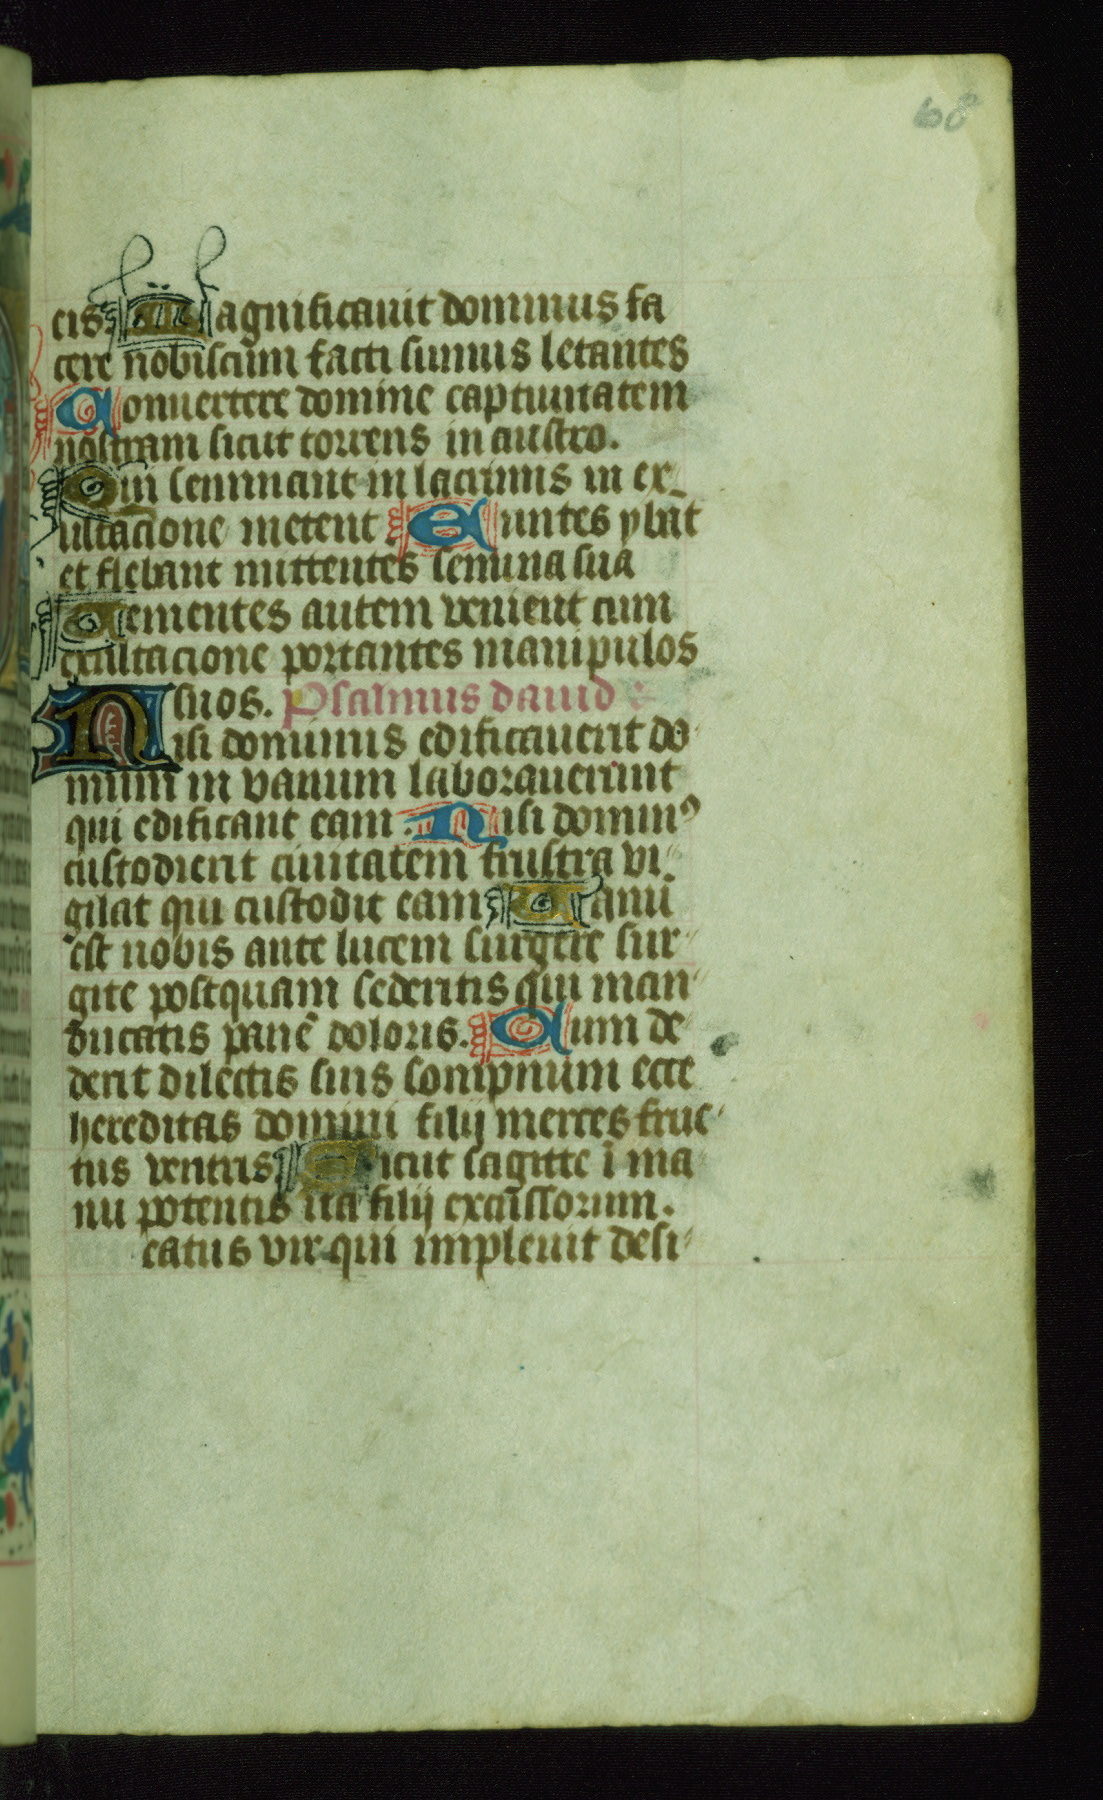 68
eis Magnificauit dominus fa
cere nobiscum facti sumus letantes
Conuertere domine captiuitatem
nostram sicut torrens in austro.
Qui seminant in lacrimis in ex
ultacione metent Euntes ybāt
et flebant mittentes semina sua
Uementes autem venient cum
exultacione portantes manipulos
suos. Psalmus dauid
Nisi dominus edificauerit do
mum in vanum laborauerunt
qui edificant eam. Nisi dominꝰ
custodierit ciuitatem frustra vi
gilat qui custodit eam Uanū
est nobis ante lucem surgere sur
gite postquam sederitis qui man
ducatis panē doloris. Cum de
derit dilectis suis sompnum ecce
hereditas domini filij merces fruc
tus ventris Sicut sagitte ī ma
nu potentis ita filij excussorum.
eatus vir qui impleuit desi